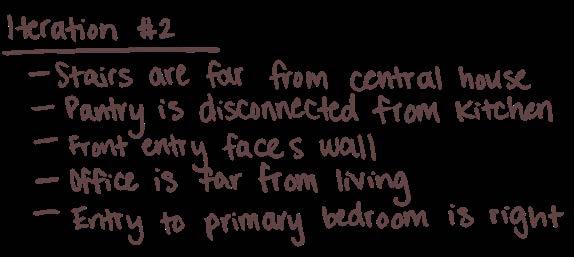 Iteration #2
- Stairs are far from central house
- Pantry is disconnected from Kitchen
- Front entry faces wall
- Office is far from living
- Entry to primary bedroom is right